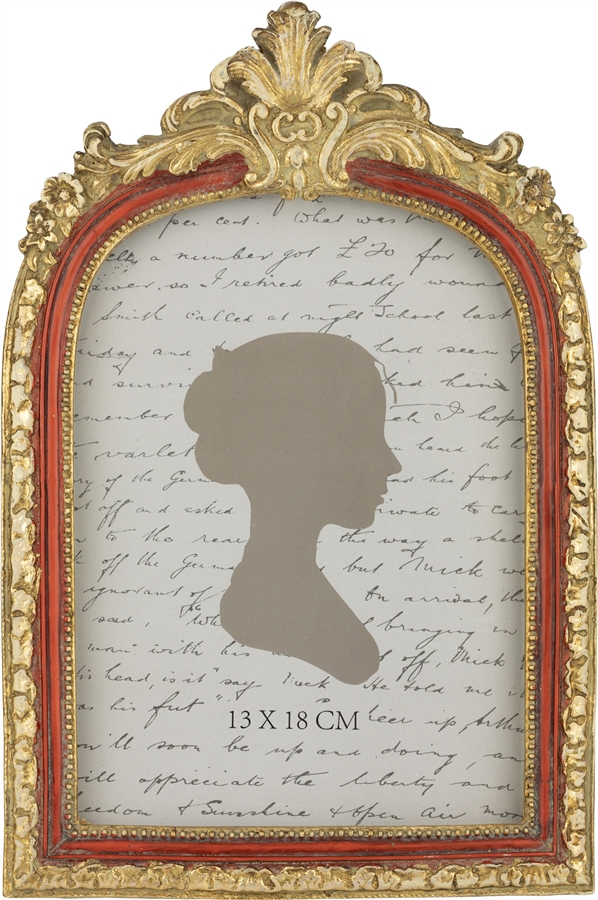 per cent. What was
a number got £20 for
so I retired badly wound
Smith called at night School last
and had seen
and survi ked him
member ch I hope
varlet heard the
ry of the Germ ad his foot
off and asked rivate to car
to the rear the way a shel
off the Germa but Mick we
ignorant of On arrival, the
said, "Wh bringing in
man with his off, Mick
his head, is it" say Mick He told me i
as his feet" heer up, Arthu
13 X 18 CM
n'll soon be up and doing, an
ill appreciate the liberty and
eedom & Sunshine & open air mo